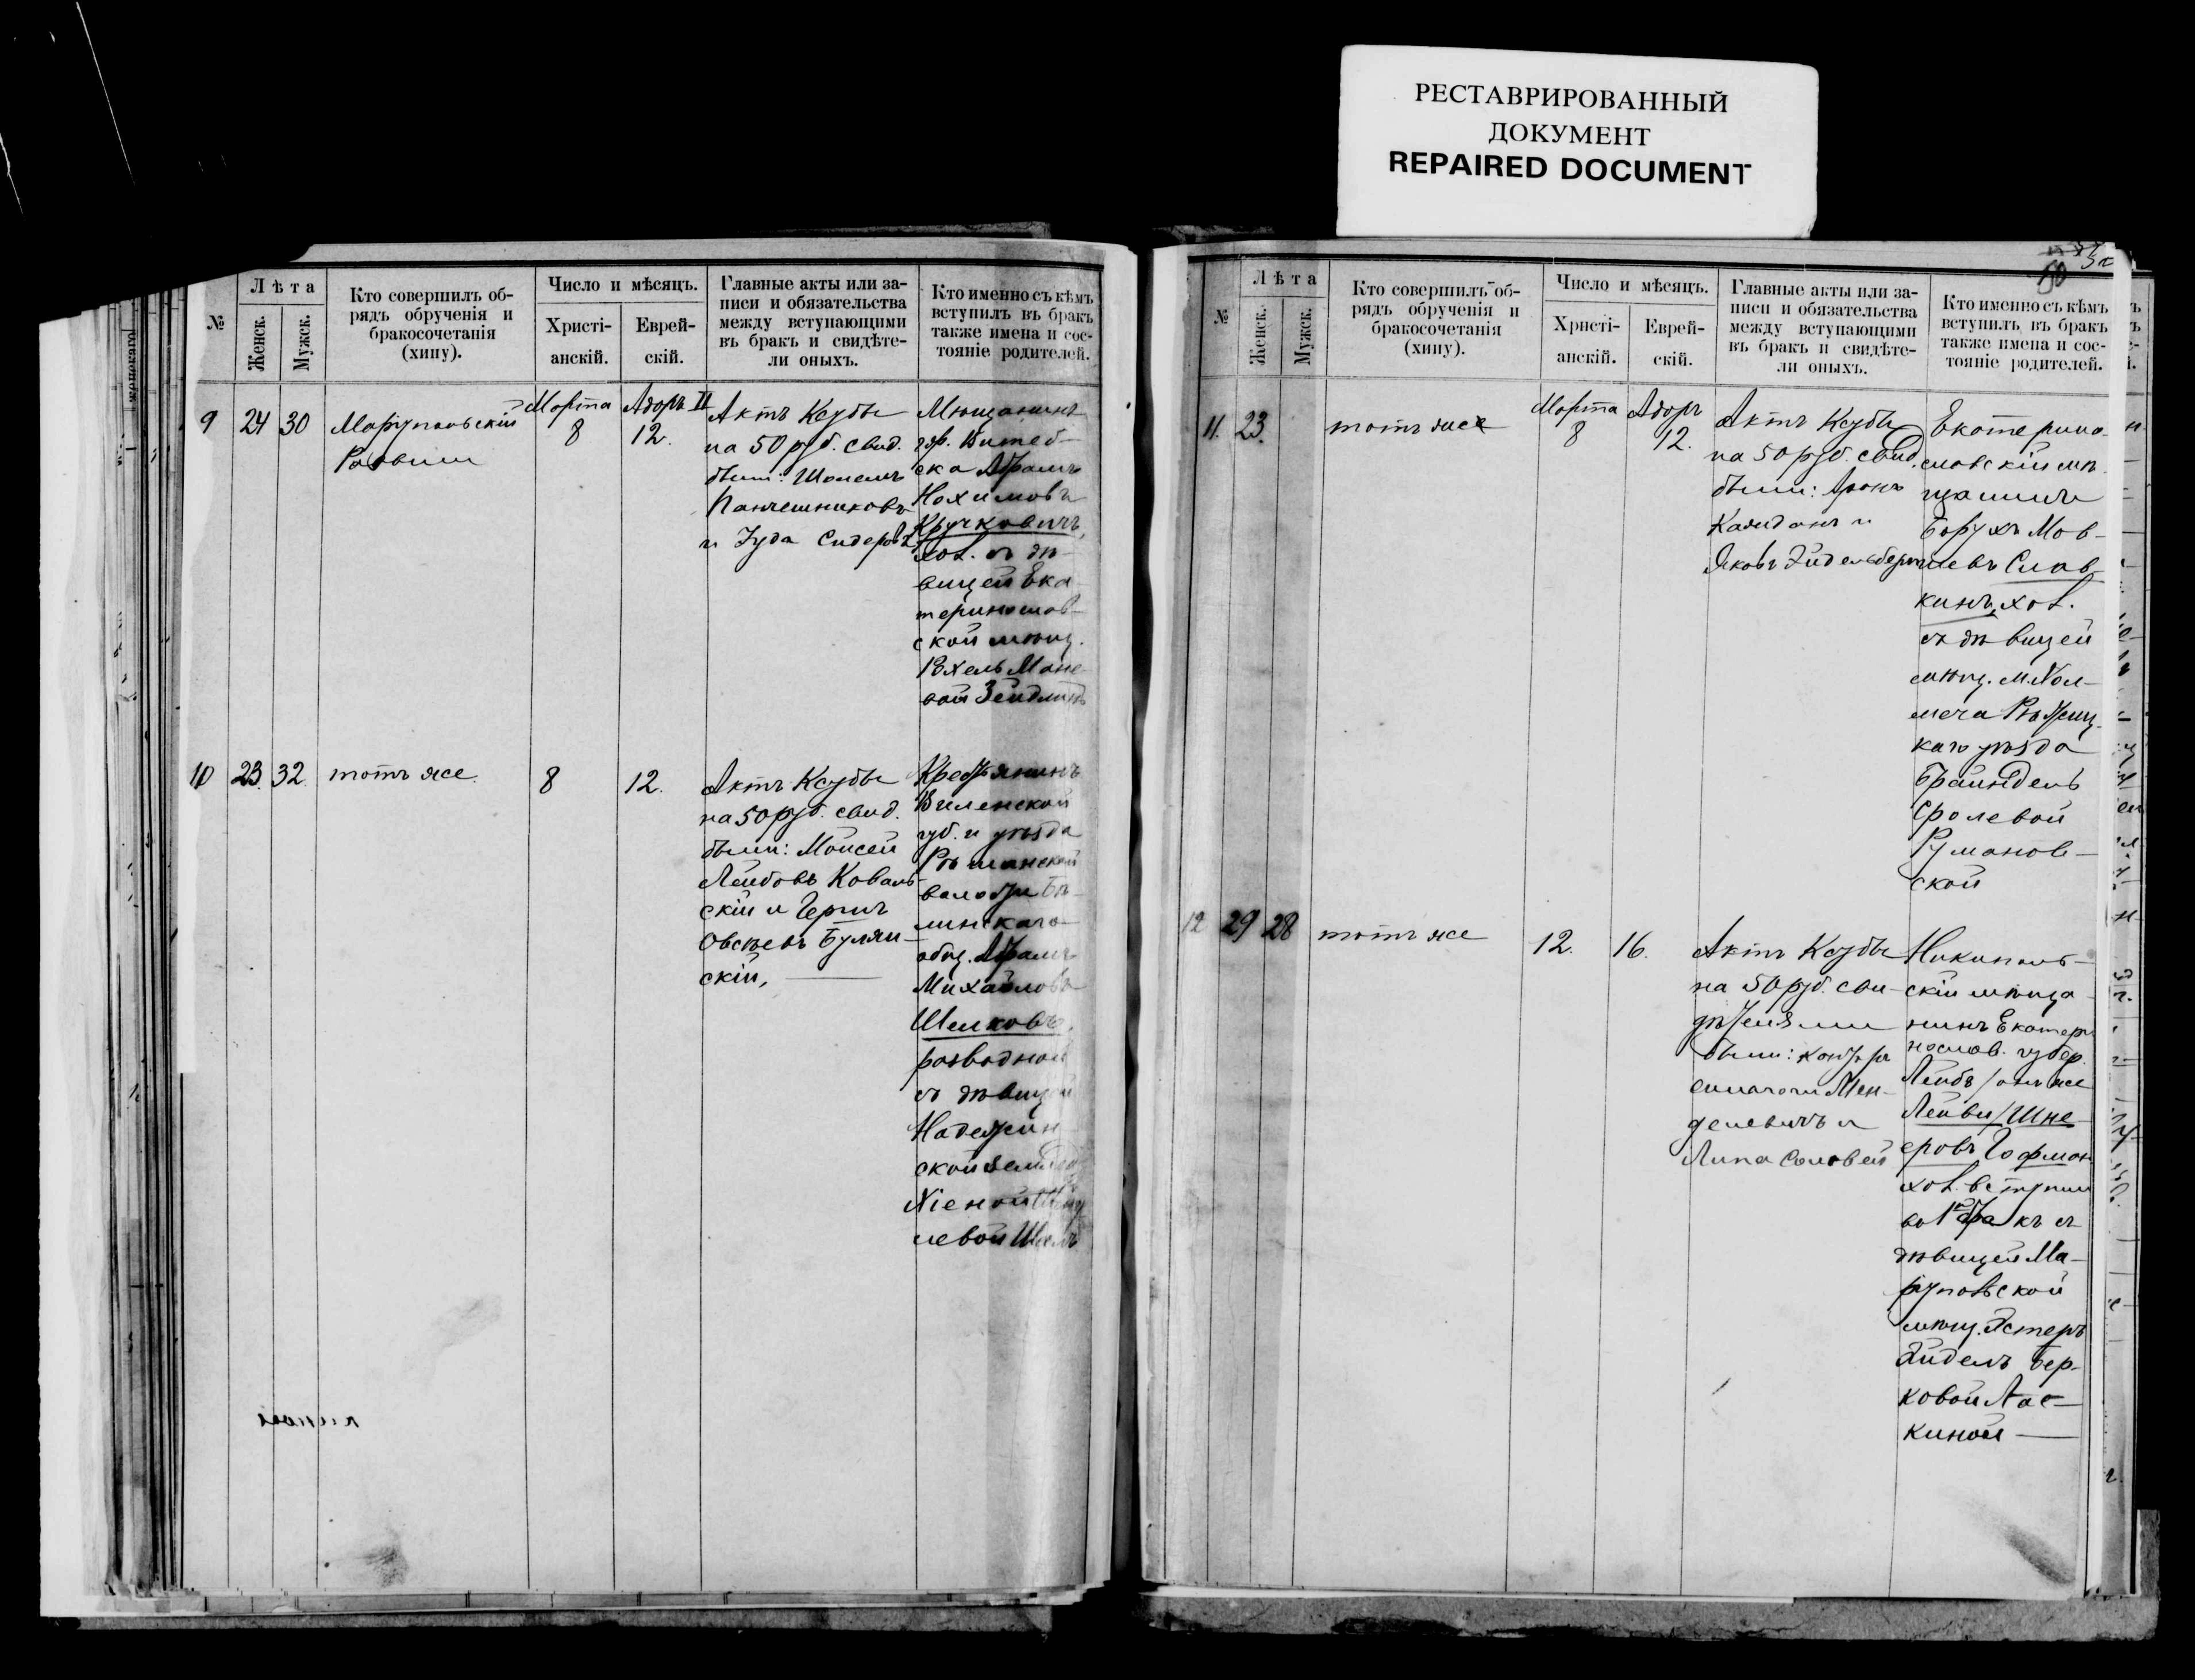 РЕСТАВРИРОВАННЫЙ
ДОКУМЕНТ
REPAIRED DOCUMENT
№
Лѣта
Женск.
Мужск.
Кто совершилъ об-
рядъ обрученія и
бракосочетанія
(хипу).
Число и мѣсяцъ.
Христі-
анскій.
Еврей-
скій.
Главные акты или за-
писи и обязательства
между вступающими
въ бракъ и свидѣте-
ли оныхъ.
Кто именно съ кѣмъ
вступилъ въ бракъ
также имена и сос-
тояніе родителей.
9
24
30
Маріупольскій
Раввинъ
Марта
8
Адоръ II
12.
Актъ Ксубы
на 50 руб. свид.
были:
и Іуда
Мѣщанинъ
гор. Витеб-
ска Абрамъ
Нохимовъ
Кручковичъ,
хол. съ дѣ-
вицей Ека-
теринослав-
ской мѣщ.
Рохель
вой
10
23.
32
тотъ же
8
12.
Актъ Ксубы
на 50 руб. свид.
были: Моисей
Лейбовъ Коваль-
скій и Герцъ
Овсѣевъ Булян-
скій,
Крестьянинъ
Виленской
губ. и уѣзда
волости
общ. Абрамъ
Михайловъ
Шелковъ,
разводной
съ дѣвицей
№
Лѣта
Женск.
Мужск.
Кто совершилъ об-
рядъ обрученія и
бракосочетанія
(хипу).
Число и мѣсяцъ.
Христі-
анскій.
Еврей-
скій.
Главные акты или за-
писи и обязательства
между вступающими
въ бракъ и свидѣте-
ли оныхъ.
Кто именно съ кѣмъ
вступилъ въ бракъ
также имена и сос-
тояніе родителей.
50
11.
23.
тотъ же
Марта
8
Адоръ
12.
Актъ Ксубы
на 50 руб. свид.
были: Аронъ
Кажданъ и
Яковъ Эйдельберг
Екатерино-
славскій мѣ-
щанинъ
Борухъ Мов-
шевъ Слав-
кинъ, хол.
съ дѣвицей
мѣщ. м. Хол-
меча Рѣчиц-
каго уѣзда
Брайндель
Сролевой
Румянов-
ской
12
29
28
тотъ же
12.
16.
Актъ Ксубы
на 50 руб. сви-
дѣтелями
были:
Мен-
делевичъ и
Липа Соловей
Никополь-
скій мѣща-
нинъ Екатери-
нослав. губер.
Лейбъ /онъ же
Лейви/ Шне-
еровъ Гофман
хол. вступил
въ 1й бракъ съ
дѣвицей Ма-
ріупольской
мѣщ. Эстеръ
Эйдель Бер-
ковой Лас-
киной